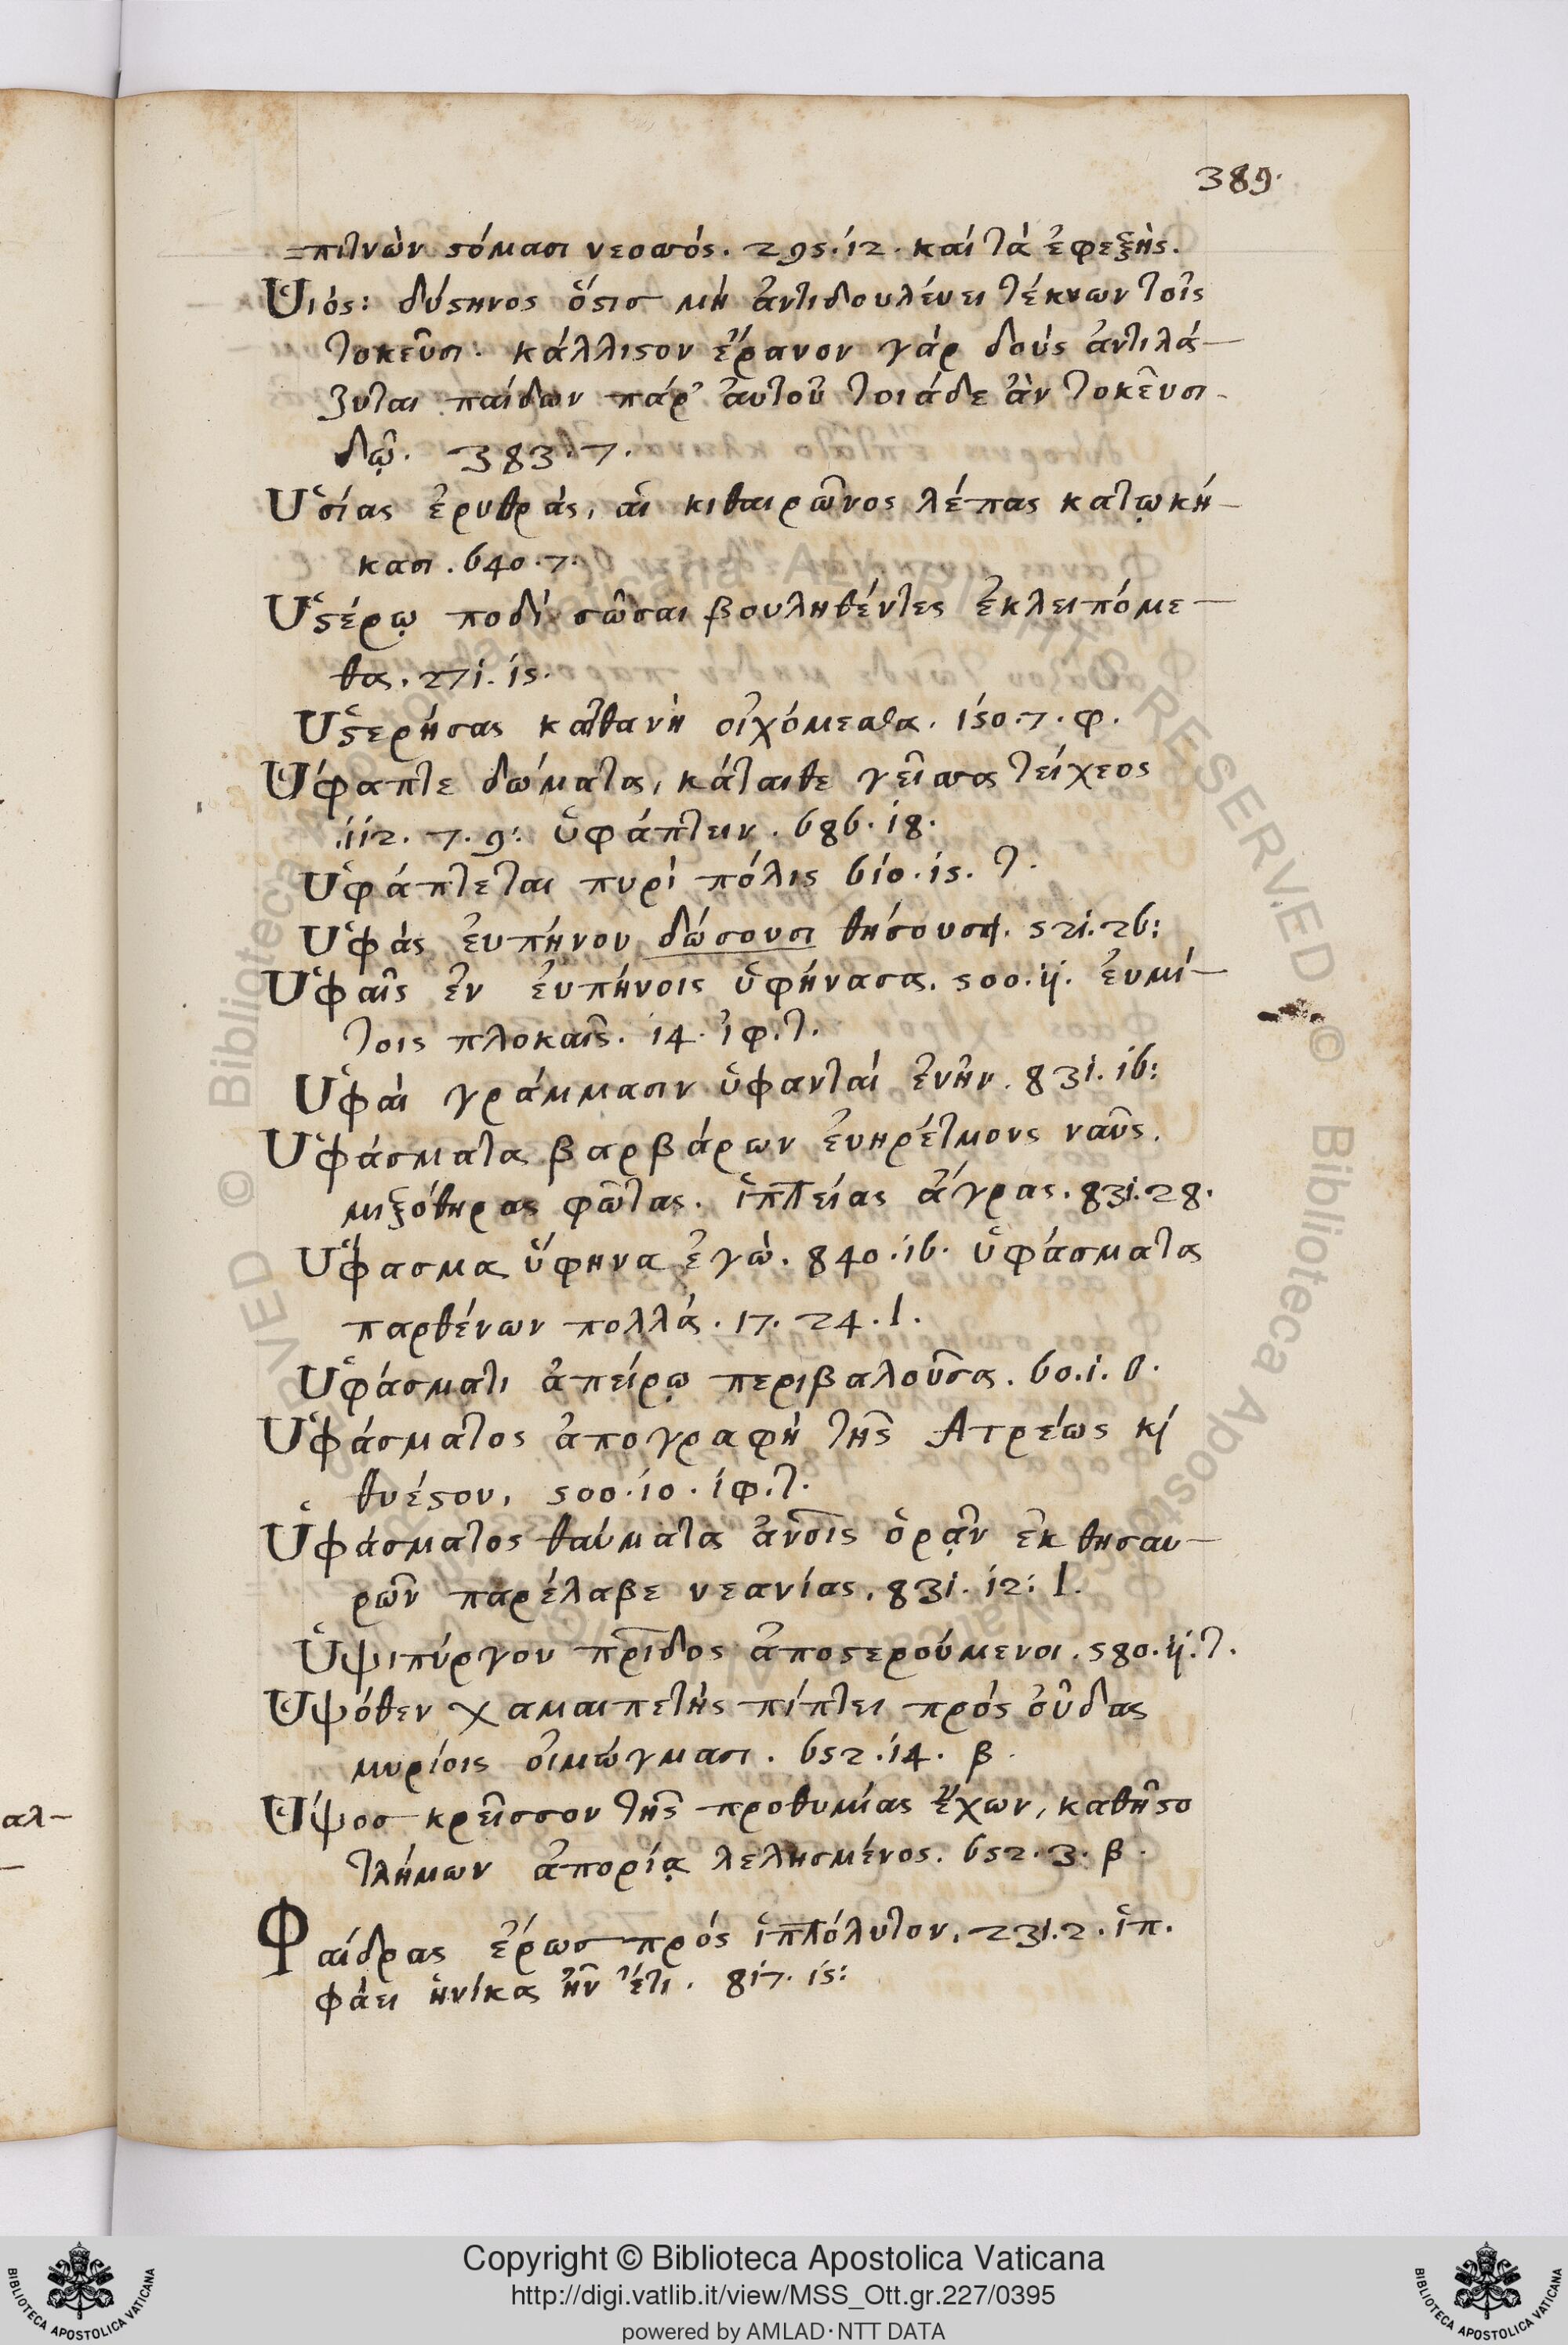 389.
=πιτνὼν στόμασι νεοσσός. 295. 12. καί τὰ ἐφεξῆς.
Υἱός: δύστηνος ὅστισ μὴ ἀντιδουλέυει τέκνων τοῖς
τοκεῦσι. κάλλιστον ἔρανον γάρ δούς ἀντιλά–
ζυται παίδων πάρ' ἀυτοῦ τοιάδε ἀν τοκεῦσι
δῷ. 383. 7.
Ὑσίας ἐρυθράς, αἳ κιθαιρῶνος λέπας κατῳκή–
κασι. 640. 7.
Ὑστέρῳ ποδὶ σῶσαι βουληθέντες ἐκλειπόμε–
θα. 271. 15.
Ὑστερήσας κατθανὴ οἰχόμεσθα. 150. 7. φ.
Ὕφαπτε δώματα, κάταιθε γεῖσσα τείχεος
112. 7. 9. ὑφάπτειν. 686. 18.
Ὑφάπτεται πυρὶ πόλις 610. 15. τ.
Ὑφάς ἐυπήνου δώσουσι θήσουσι. 521. 26:
Ὑφαῖς ἐν ἐυπήνοις ὑφήνασα. 500. 11. ἐυμί–
τοις πλοκαῖς. 14. ἰφ. τ.
Ὑφαὶ γράμμασιν ὑφανταί ἐνῆν. 831. 16:
Ὑφάσματα βαρβάρων ἐυηρέτμους ναῦς.
μιξόθηρας φῶτας. ἱππείας ἄγρας. 831. 28.
Ὕφασμα ὕφηνα ἐγὼ. 840. 16. ὑφάσματα
παρθένων πολλά. 17. 24. Ι.
Ὑφάσματι ἀπείρῳ περιβαλοῦσα. 60. 1. θ.
Ὑφάσματος ἀπογραφὴ τῆς Ατρέως κί
θυέστου, 500. 10. ἰφ. τ.
Ὑφάσματος θαύματα ἀνσις ὁρᾷν ἐκ θησαυ–
ρῶν παρέλαβε νεανίας. 831. 12: Ι.
Ὑψιπύργου πριδος ἀποστερούμενοι. 580. 11. τ.
Υψόθεν χαμαιπετὴς πίπτει πρός οὖδας
μυρίοις οἰμώγμασι. 652. 14. β.
Υψοσ κρεῖσσον τῆς προθυμίας ἔχων, καθῆστο
τλήμων ἀπορίᾳ λελησμένος. 652. 3. β.
Φαίδρας ἔρωσ πρός ἱππόλυτον. 231. 2. ἱπ.
φάει ἡνίκα ἦν ἔτι. 817. 15:
αλ–
Copyright © Biblioteca Apostolica Vaticana
http://digi.vatlib.it/view/MSS_Ott.gr.227/0395
powered by AMLAD·NTT DATA